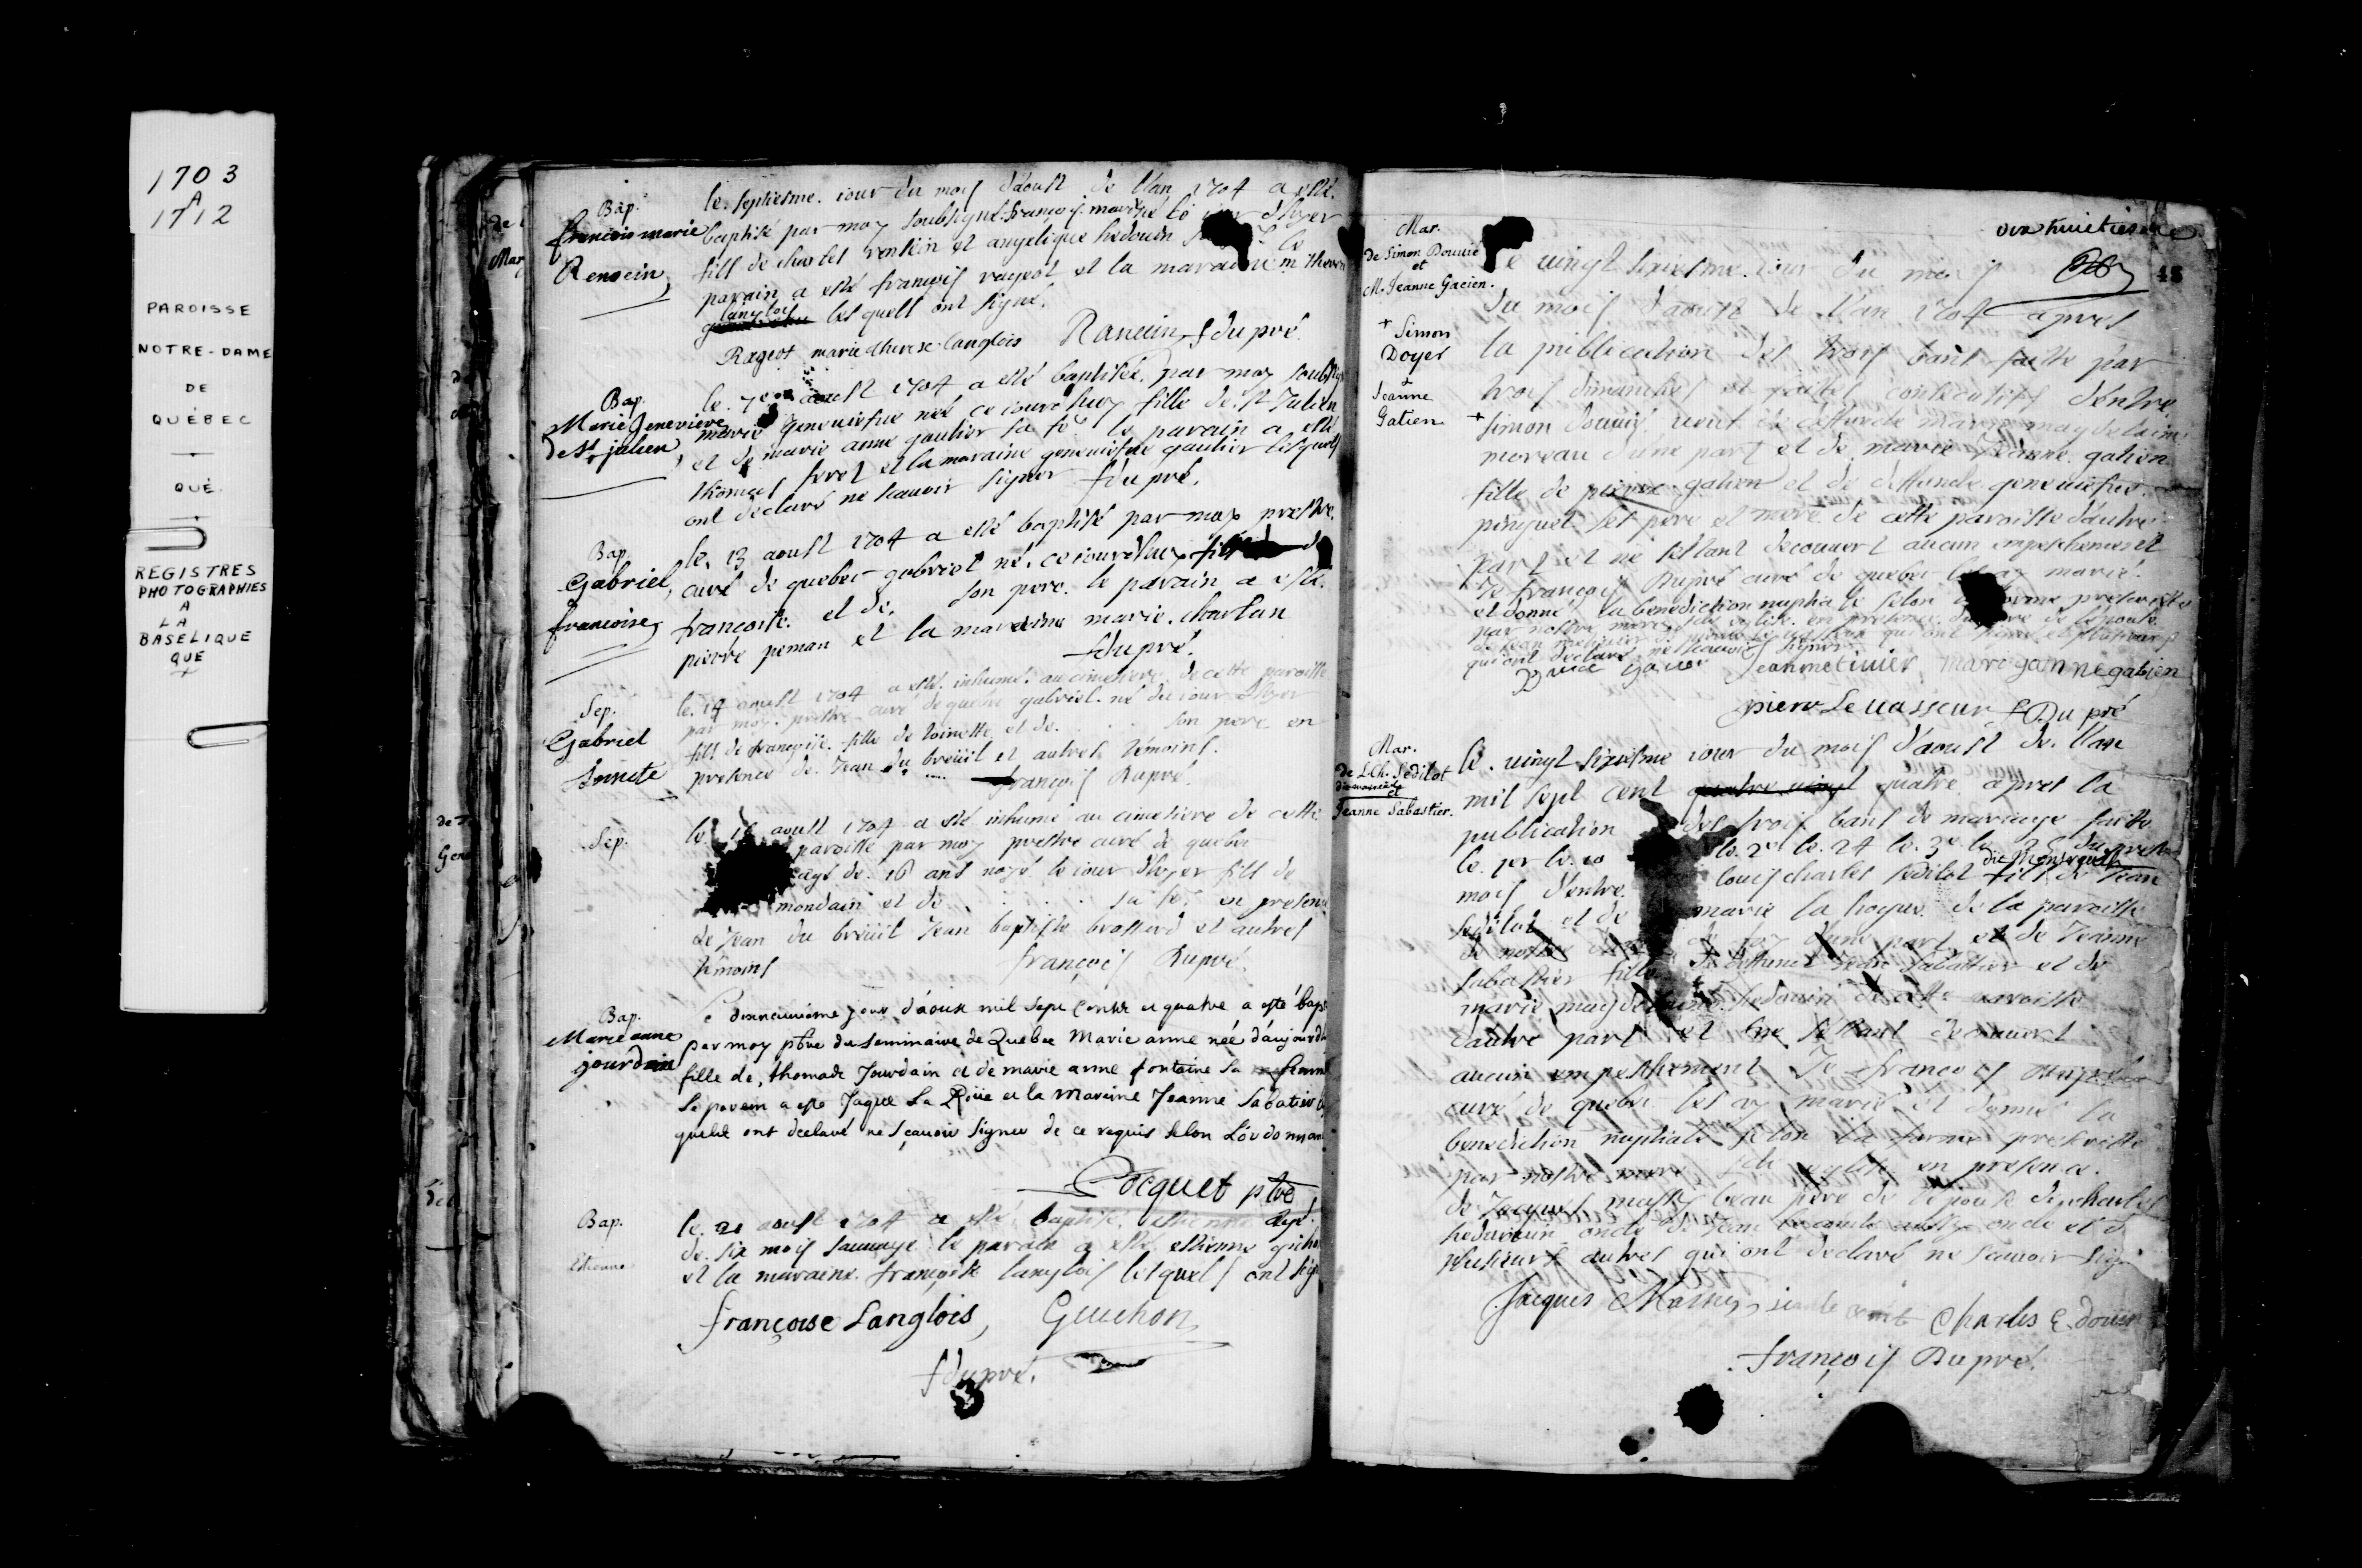 1703
A
1712
PAROISSE
NOTRE-DAME
DE
QUÉBEC
QUÉ.
REGISTRES
PHOTOGRAPHIES
A
LA
BASELIQUE
QUE
Bap.
francois marie
Rencein
le septiesme iour du mois d'aoust de l'an 1704 a esté
baptisé par moy soubsigné françois marie né le iour d'hyer
fils de charles et angelique hedouin le
parain a esté françois rageot et la maraine m therese
langlois lesquels ont signé.
Rageot marie therese langlois Rancin fdupré
Bap.
Marie Genevieve
de St julien
le 7e aoust 1704 a esté baptisée par moy soubsigné
marie geneviefue née ce iourdhuy fille de St Julien
et de marie anne gaultier sa fe le parain a esté
thomas feret et la maraine geneviefue gaultier lesquels
ont declaré ne scauoir signer fdupré.
Bap.
Gabriel
francoise
le 13 aoust 1704 a esté baptisé par moy prestre
curé de quebec gabriel né ce iourdhuy fils de
françoise et de son pere le parain a esté
pierre peman et la maraine marie charlan
fdupré.
Sep.
Gabriel
le 14 aoust 1704 a esté inhumé au cimetiere de cette paroisse
par moy prestre curé de quebec gabriel né du iour d'hyer
fils de françoise fille de toinette et de . . . son pere en
presence de Jean du breüil et autres témoins.
françois Dupré
Sep.
le aoust 1704 a esté inhumé au cimetiere de cette
paroisse par moy prestre curé de quebec
agé de 16 ans noyé le iour d'hyer fils de
mondain et de . . . . sa fe en presence
de Jean du breüil Jean baptiste brossard et autres
témoins françois Dupré
Bap.
Marie anne
jourdain
dixneuvième jour d'aoust mil sept cents et quatre a esté bap
par moy pbre du Seminaire de Quebec Marie anne née d'aujourd
fille de thomas Jourdain et de marie anne fontaine sa femme
le parein a esté Jaque La Roüe et la Mareine Jeanne Sabatier
quels ont declaré ne sçauoir signer de ce requis selon L'ordonnan
Pocquet ptre
Bap.
Etienne
le 21 aoust 1704 a esté baptisé estienne agé
de six mois sauuage le parain a esté estienne
et la maraine françoise langlois lesquels ont sig
françoise Langlois Guichon
fdupré.
48
Mar.
de Simon Doüuié
et
M. Jeanne Gacien.
+ Simon
Doyer
+
Jeanne
Gatien
Le uingt sixiesme iour du mois
du mois d'aoust de l'an 1704 apres
la publication des trois bans faitte par
trois dimanches et festes consecutifs d'entre
simon ueuf de deffunte marie magdelaine
moreau d'une part et de marie Jeanne gatien
fille de pierre gatien et de deffunte geneviefue
pinguet ses pere et mere de cette paroisse d'autre
part et ne s'estant decouuert aucun empeschement
Je françois Dupré curé de quebec les ay marié
et donné la benediction nuptiale selon la forme prescritte
par nostre mere ste eglise en presence du pere de l'epouse
qui ont declaré ne scauoir signer
Jean metiuier marie janne gatien
pierre Leuasseur fDupré
Mar.
de L. Ch. Sedilot
et
Jeanne Sabastier.
le uingt sixiesme iour du mois d'aoust de l'an
mil sept cent quatre apres la
publication des trois bans de mariage faitte
le 1er le 10 le 2e le 24 le 3e le
mois d'entre louis charles sedilot dit Montreuil fils de Jean
sedilot et de marie la hogue de la paroisse
de nostre dame de foy d'une part et de Jeanne
sabastier fille de deffunct sabastier et de
marie magdelaine hedouin de cette paroisse
d'autre part et ne s'estant decouuert
aucun empeschement Je françois dupré
curé de quebec les ay marié et donné la
benediction nuptiale selon la forme prescritte
par nostre mere ste eglise en presence
de Jacques beau pere de l'epouse de charles
hedouin oncle de Jean oncle et de
plusieurs autres qui ont declaré ne scauoir sig
Jacques Charles Edouin
françois Dupré.